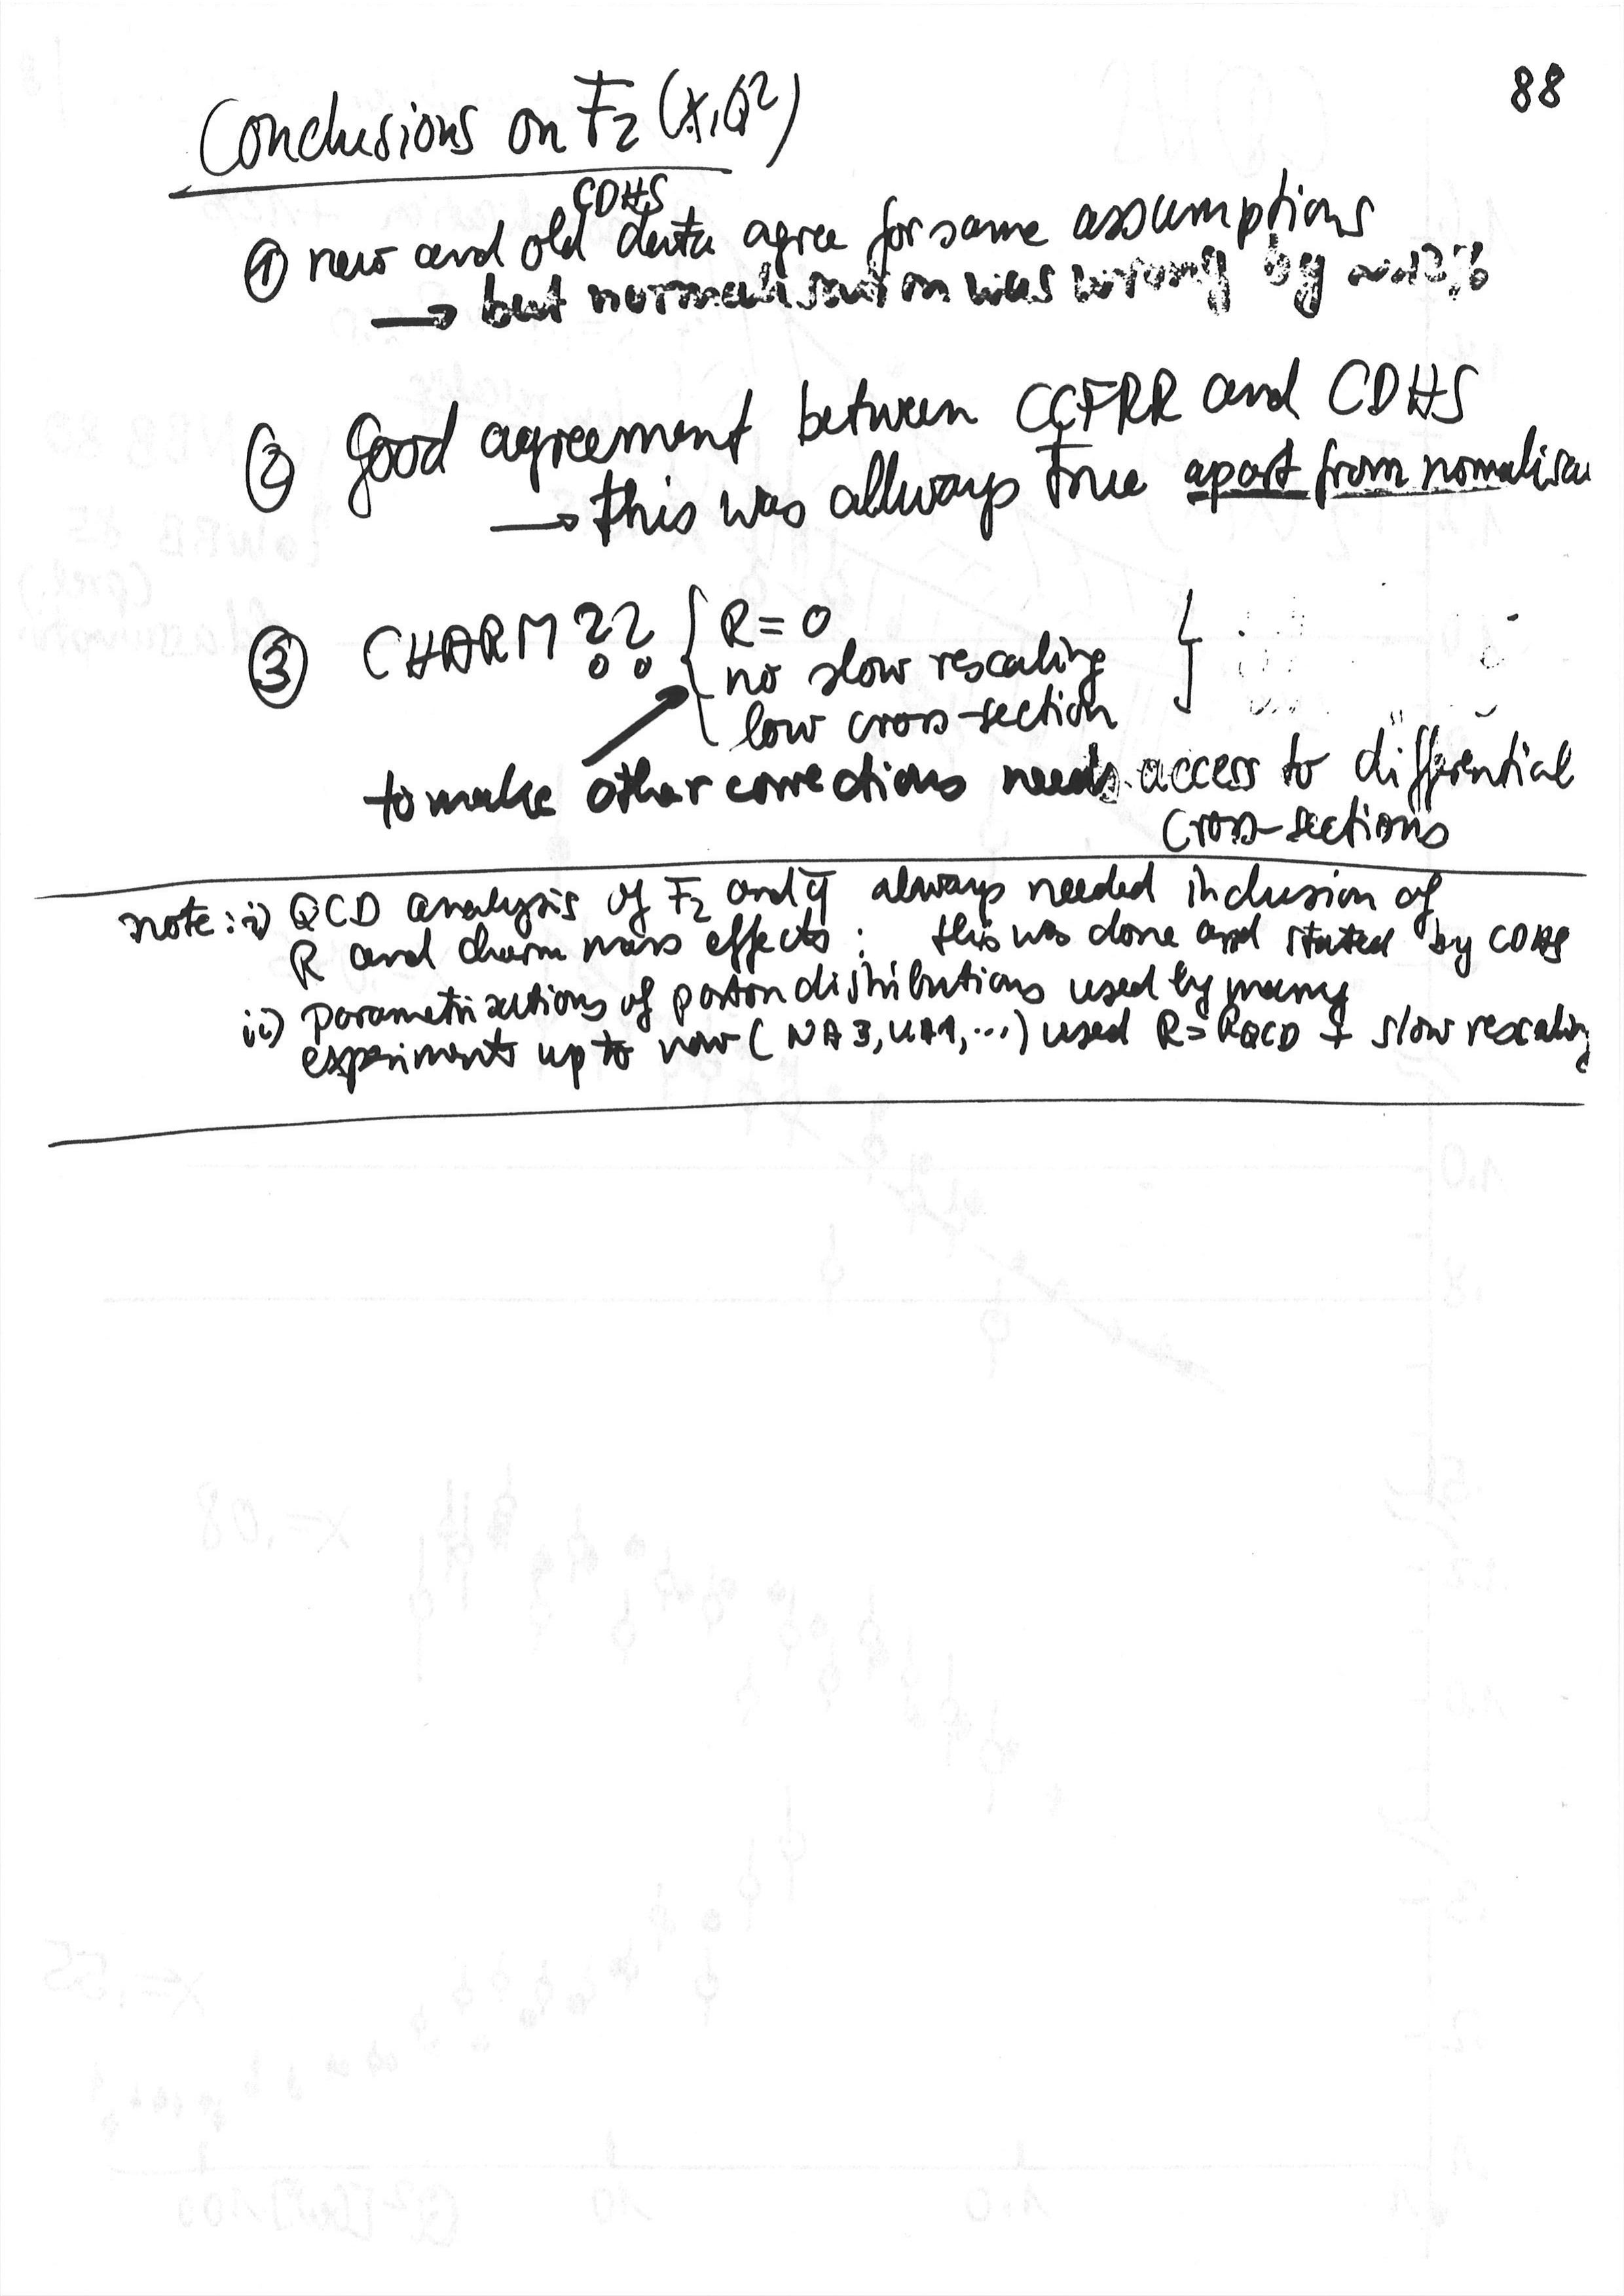 88
Conclusions on F₂(x,Q²)
CDHS
① new and old data agree for same assumptions
→ but normalisation was wrong by
② Good agreement between CCFRR and CDHS
→ this was allways true apart from nomalisa
③ CHARM ?? { R=0 }
no slow rescaling
low cross-section
to make other corrections needs access to differential
cross-sections
note: i) QCD analysis of F₂ and q̄ always needed inclusion of
R and charm mass effects : this was done and stated by CDHS
ii) parametrisations of parton distributions used by many
experiments up to now (NA3, UA1, ...) used R=R_QCD + slow rescaling